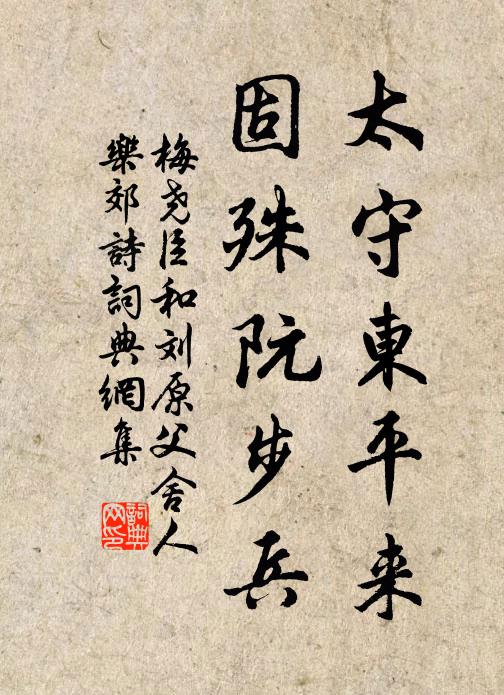 太守東平来
固殊阮步兵
梅尧臣和刘原父舍人
樂郊詩詞典網集
詞典网印